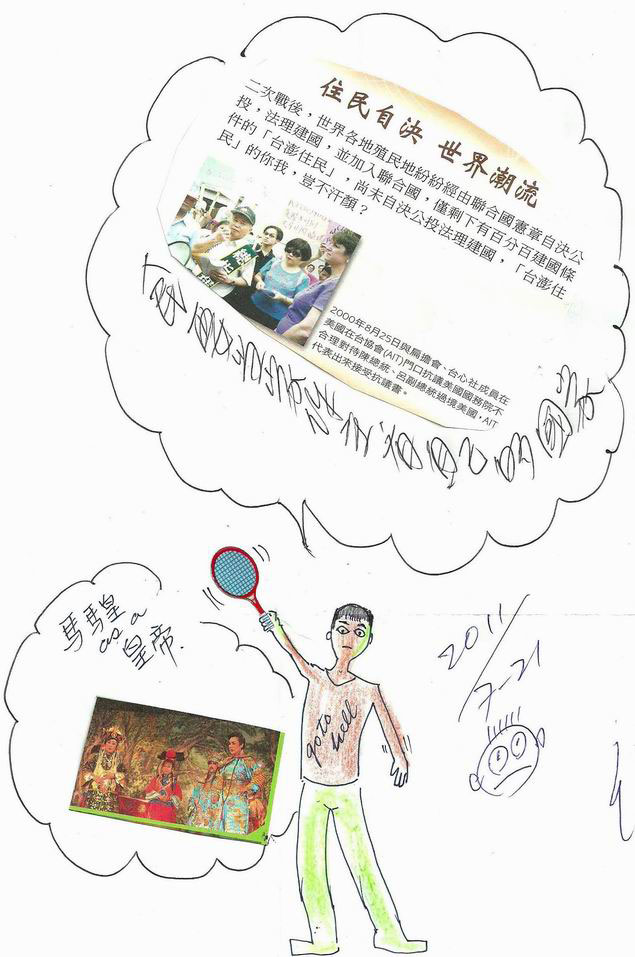 住民自決 世界潮流
二次戰後，世界各地殖民地紛紛經由聯合國憲章自決公
投，法理建國，並加入聯合國，僅剩下有百分百建國條
件的「台澎住民」，尚未自決公投法理建國，「台澎住
民」的你我，豈不汗顏？
2000年8月25日與扁擔會、台心社成員在
美國在台協會(AIT)門口抗議美國國務院不
合理對待陳總統、呂副總統過境美國，AIT
代表出來接受抗議書。
自己的國家
馬馬皇
as a
皇帝.
go to
hell
2011/7-21